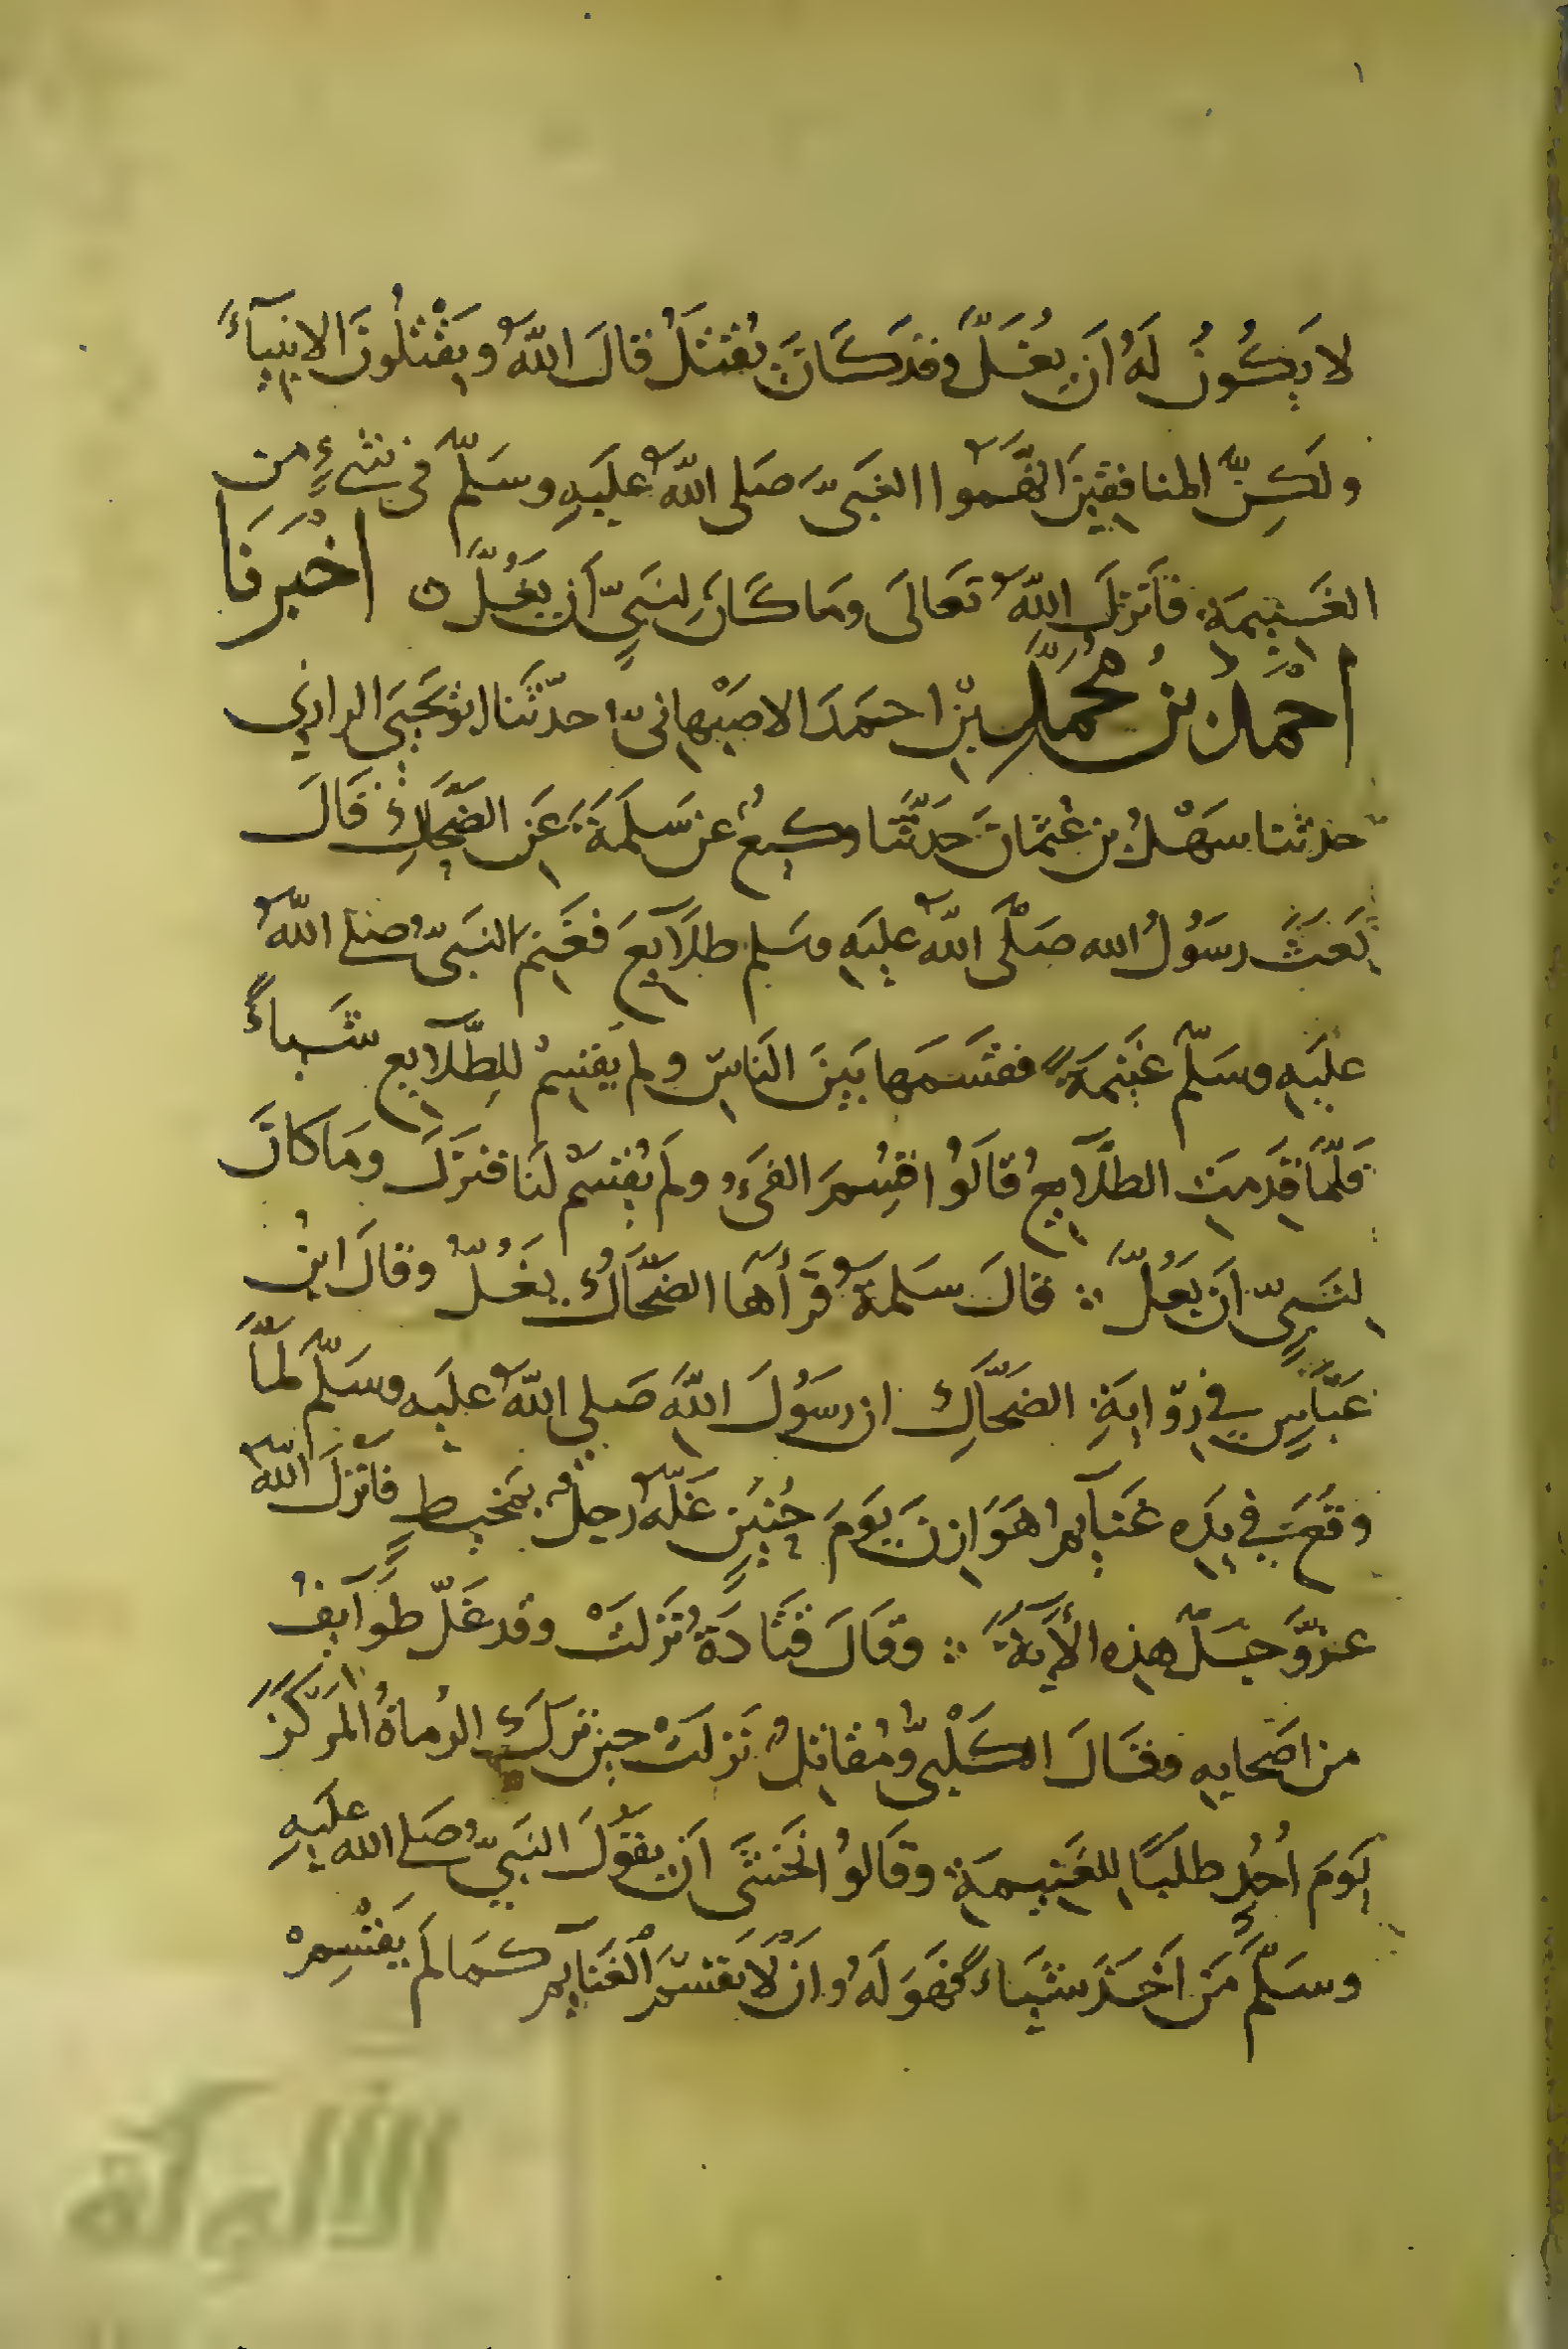 ١
لا يَكُونُ لَهُ اَن يُغَلَّ وقد كَانَ يُقْتَلُ قالَ اللّٰهُ ويَقْتُلُونَ الانبيآءَ
ولكِنَّ المنافقينَ اتَّهَموا النَبىَّ صَلى اللّٰهُ عليَهِ وسَلَّم فى شىءٍ من
الغَنيمَةِ فاَنزلَ اللّٰهُ تعَالَى ومَا كَانَ لِنَبىٍّ اَن يَغُلَّ ٥ اخْبَرنَا
احْمَدُ بنُ مُحَمَّدِ بْنِ احمَدَ الاصبَهانىُّ حدّثَنا ابو يَحيَى الرازي
حدثنا سَهْلُ بن عُثمَانَ حَدَّثنا وكيعُ عن سَلَمَةَ عَن الضَّحاكِ قَالَ
بَعَثَ رسَوُلُ الله صَلَّى اللّٰهُ عليَهِ وسَلم طلَآيعَ فغَنِمَ النبَىُّ صلى اللّٰهُ
عليَهِ وسَلّم غَنيمَةً فقَسَمَها بَينَ الناسِ ولم يَقسِمْ للِطَّلآيعِ شَياءً
فَلمَّا قدَمِتِ الطلَّآيعُ قالَوُا قسَمَ الفَىءَ ولَم يَقْسِمْ لنَا فنزَلَ ومَا كانَ
لنَبىٍّ اَن يَغُلَّ ؞ قالَ سَلمة قَرأهَا الضحَّاكُ يَغُلَّ وقالَ ابنُ
عَبَّاسٍ في رِوَايَةِ الضحَّاكِ ان رسَوُلَ اللّٰهِ صَلى اللّٰهُ عليَه وسَلّم لمَّا
وقَعَتَ في يدَهِ غَنَآيمُ هَوَازِنَ يَومَ حُنَينٍ غَلَّهُ رجلٌ بمَخيطٍ فاَنزلَ اللّٰهُ
عزَّ وَجَلَّ هذِه الاَيةَ ؞ وقَالَ قتَادَةُ نَزلَتْ وقد غَلّ طوَآيفُ
من اصَحابِهِ وقالَ الكَلْبىُّ ومُقاتِلٌ نَزلَتْ حين تَركَتِ الرُماةُ المَركَزَ
يَومَ اُحُدٍ طلَبًا للغَنيمَةِ وقَالوُا نَخشَى اَن يَقُولَ النَبيُّ صَلى الله عليَهِ
وسَلَّم مَن اَخَذَ شَيَاءً فهَوَ لَهُ واَن لَا يَقسمَ الغَنَآيمَ كمَا لَم يَقْسِمْ
الألوكة